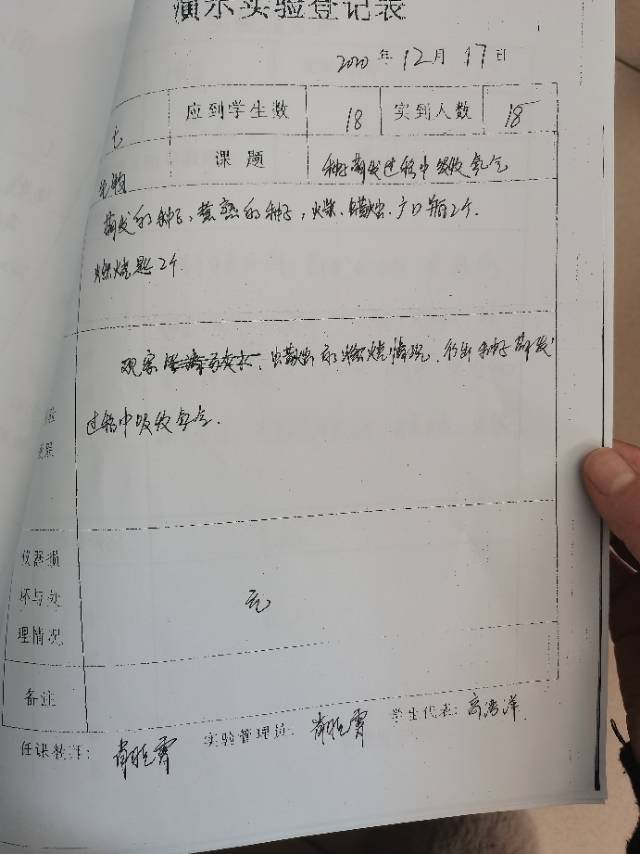 演示实验登记表
2020 年 12 月 17 日
七 应到学生数 18 实到人数 18
生物 课 题 种子萌发过程中吸收氧气
萌发的种子,煮熟的种子,火柴、蜡烛、广口瓶2个.
燃烧匙2个.
观察 蜡烛的燃烧情况,得出种子萌发
过程中吸收氧气.
仪器损
坏与处 无
理情况
备注
任课教师: 实验管理员: 学生代表: